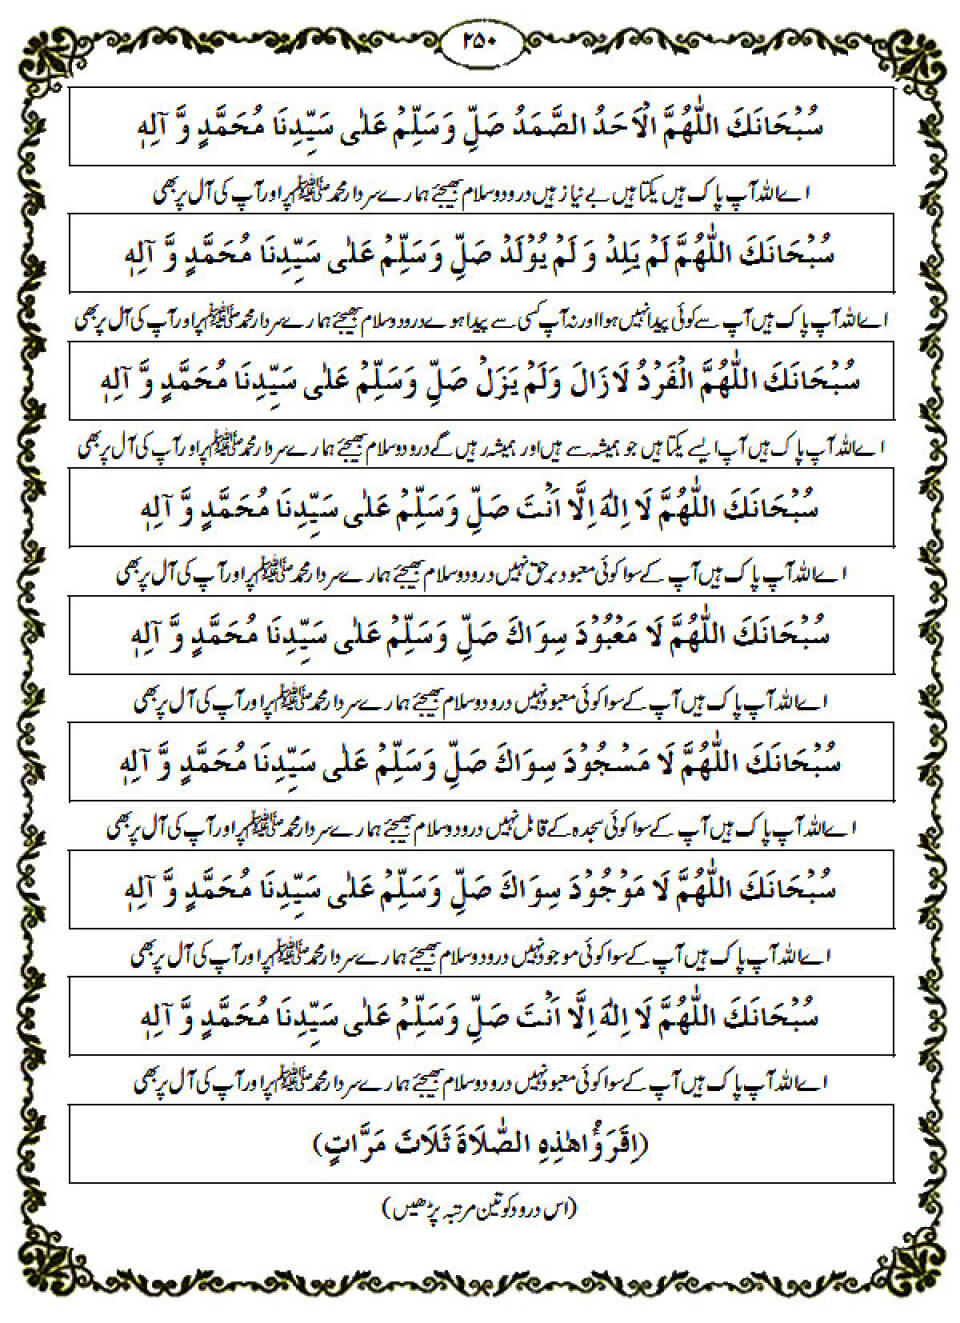 ۲۵۰
سُبْحَانَكَ اللّٰهُمَّ الْاَحَدُ الصَّمَدُ صَلِّ وَسَلِّمْ عَلٰى سَيِّدِنَا مُحَمَّدٍ وَّ آلِهٖ
اے اللہ آپ پاک ہیں یکتا ہیں بے نیاز ہیں درود و سلام بھیجئے ہمارے سردار محمد ﷺ پر اور آپ کی آل پر بھی
سُبْحَانَكَ اللّٰهُمَّ لَمْ يَلِدْ وَ لَمْ يُوْلَدْ صَلِّ وَسَلِّمْ عَلٰى سَيِّدِنَا مُحَمَّدٍ وَّ آلِهٖ
اے اللہ آپ پاک ہیں آپ سے کوئی پیدا نہیں ہوا اور نہ آپ کسی سے پیدا ہوے درود و سلام بھیجئے ہمارے سردار محمد ﷺ پر اور آپ کی آل پر بھی
سُبْحَانَكَ اللّٰهُمَّ الْفَرْدُ لَازَالَ وَلَمْ يَزَلْ صَلِّ وَسَلِّمْ عَلٰى سَيِّدِنَا مُحَمَّدٍ وَّ آلِهٖ
اے اللہ آپ پاک ہیں آپ ایسے یکتا ہیں جو ہمیشہ سے ہیں اور ہمیشہ رہیں گے درود و سلام بھیجئے ہمارے سردار محمد ﷺ پر اور آپ کی آل پر بھی
سُبْحَانَكَ اللّٰهُمَّ لَا اِلٰهَ اِلَّا اَنْتَ صَلِّ وَسَلِّمْ عَلٰى سَيِّدِنَا مُحَمَّدٍ وَّ آلِهٖ
اے اللہ آپ پاک ہیں آپ کے سوا کوئی معبود برحق نہیں درود و سلام بھیجئے ہمارے سردار محمد ﷺ پر اور آپ کی آل پر بھی
سُبْحَانَكَ اللّٰهُمَّ لَا مَعْبُوْدَ سِوَاكَ صَلِّ وَسَلِّمْ عَلٰى سَيِّدِنَا مُحَمَّدٍ وَّ آلِهٖ
اے اللہ آپ پاک ہیں آپ کے سوا کوئی معبود نہیں درود و سلام بھیجئے ہمارے سردار محمد ﷺ پر اور آپ کی آل پر بھی
سُبْحَانَكَ اللّٰهُمَّ لَا مَسْجُوْدَ سِوَاكَ صَلِّ وَسَلِّمْ عَلٰى سَيِّدِنَا مُحَمَّدٍ وَّ آلِهٖ
اے اللہ آپ پاک ہیں آپ کے سوا کوئی سجدہ کے قابل نہیں درود و سلام بھیجئے ہمارے سردار محمد ﷺ پر اور آپ کی آل پر بھی
سُبْحَانَكَ اللّٰهُمَّ لَا مَوْجُوْدَ سِوَاكَ صَلِّ وَسَلِّمْ عَلٰى سَيِّدِنَا مُحَمَّدٍ وَّ آلِهٖ
اے اللہ آپ پاک ہیں آپ کے سوا کوئی موجود نہیں درود و سلام بھیجئے ہمارے سردار محمد ﷺ پر اور آپ کی آل پر بھی
سُبْحَانَكَ اللّٰهُمَّ لَا اِلٰهَ اِلَّا اَنْتَ صَلِّ وَسَلِّمْ عَلٰى سَيِّدِنَا مُحَمَّدٍ وَّ آلِهٖ
اے اللہ آپ پاک ہیں آپ کے سوا کوئی معبود نہیں درود و سلام بھیجئے ہمارے سردار محمد ﷺ پر اور آپ کی آل پر بھی
(اِقْرَؤُا هٰذِهِ الصَّلَاةَ ثَلَاثَ مَرَّاتٍ)
(اس درود کو تین مرتبہ پڑھیں)